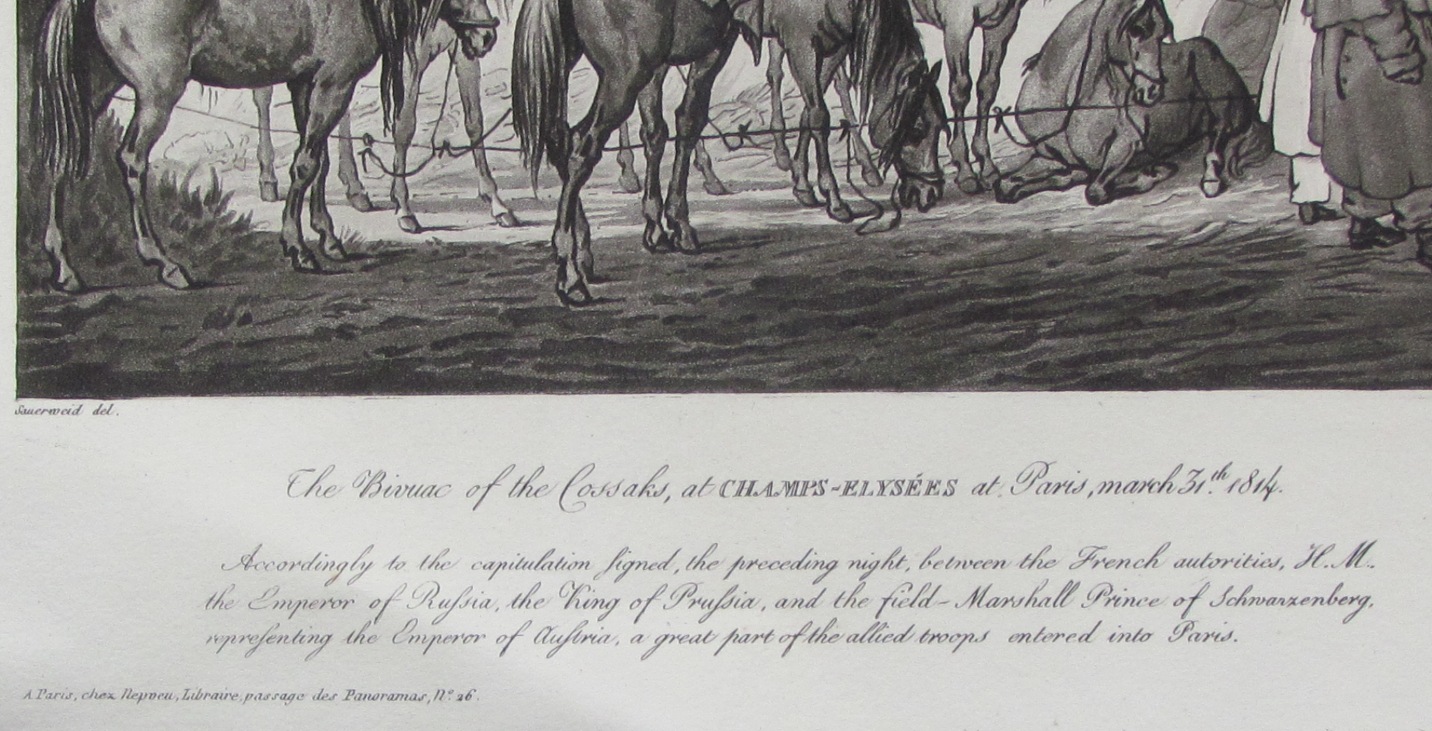 Sauerweid del.
The Bivuac of the Cossaks, at CHAMPS-ELYSÉES at Paris, march 31.th 1814.
Accordingly to the capitulation ſigned, the preceding night, between the French autorities, H. M.
the Emperor of Ruſsia, the King of Pruſsia, and the field-Marshall Prince of Schwarzenberg,
repreſenting the Emperor of Auſtria, a great part of the allied troops entered into Paris.
A Paris, chez Nepveu, Libraire, passage des Panoramas, N.o 26.